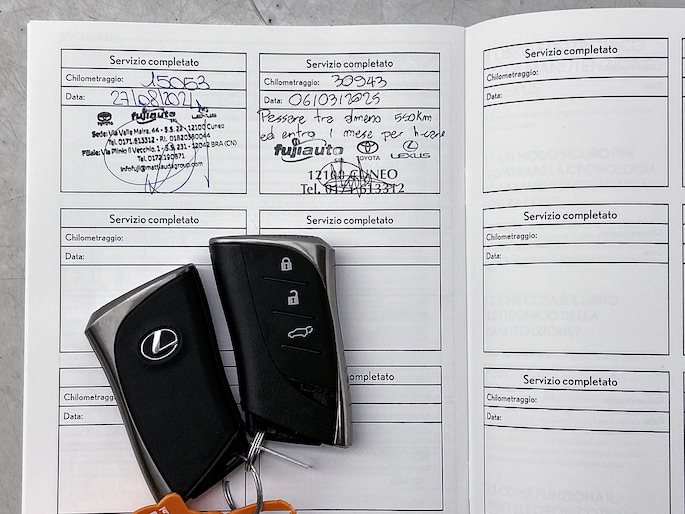 Servizio completato
Chilometraggio: 15053
Data: 27/08/2021
TOYOTA fujiauto LEXUS
Sede: Via Valle Maira, 44 - S.S. 22 - 12100 Cuneo
Tel. 0171.613312 - P.I. 01820380044
Filiale: Via Plinio Il Vecchio, 1 - S.S. 231 - 12042 BRA (CN)
Tel. 0172.190871
infofuji@mattiautogroup.com
Servizio completato
Chilometraggio: 30943
Data: 06/03/2025
Passare tra almeno 550km
ed entro 1 mese per
fujiauto TOYOTA LEXUS
12100 CUNEO
Tel. 0171 613312
Servizio completato
Chilometraggio:
Data:
Servizio completato
Chilometraggio:
Data:
Servizio completato
Servizio completato
Chilometraggio:
Data:
completato
Servizio completato
Chilometraggio:
Data:
Servizio completato
Chilometraggio:
Data: